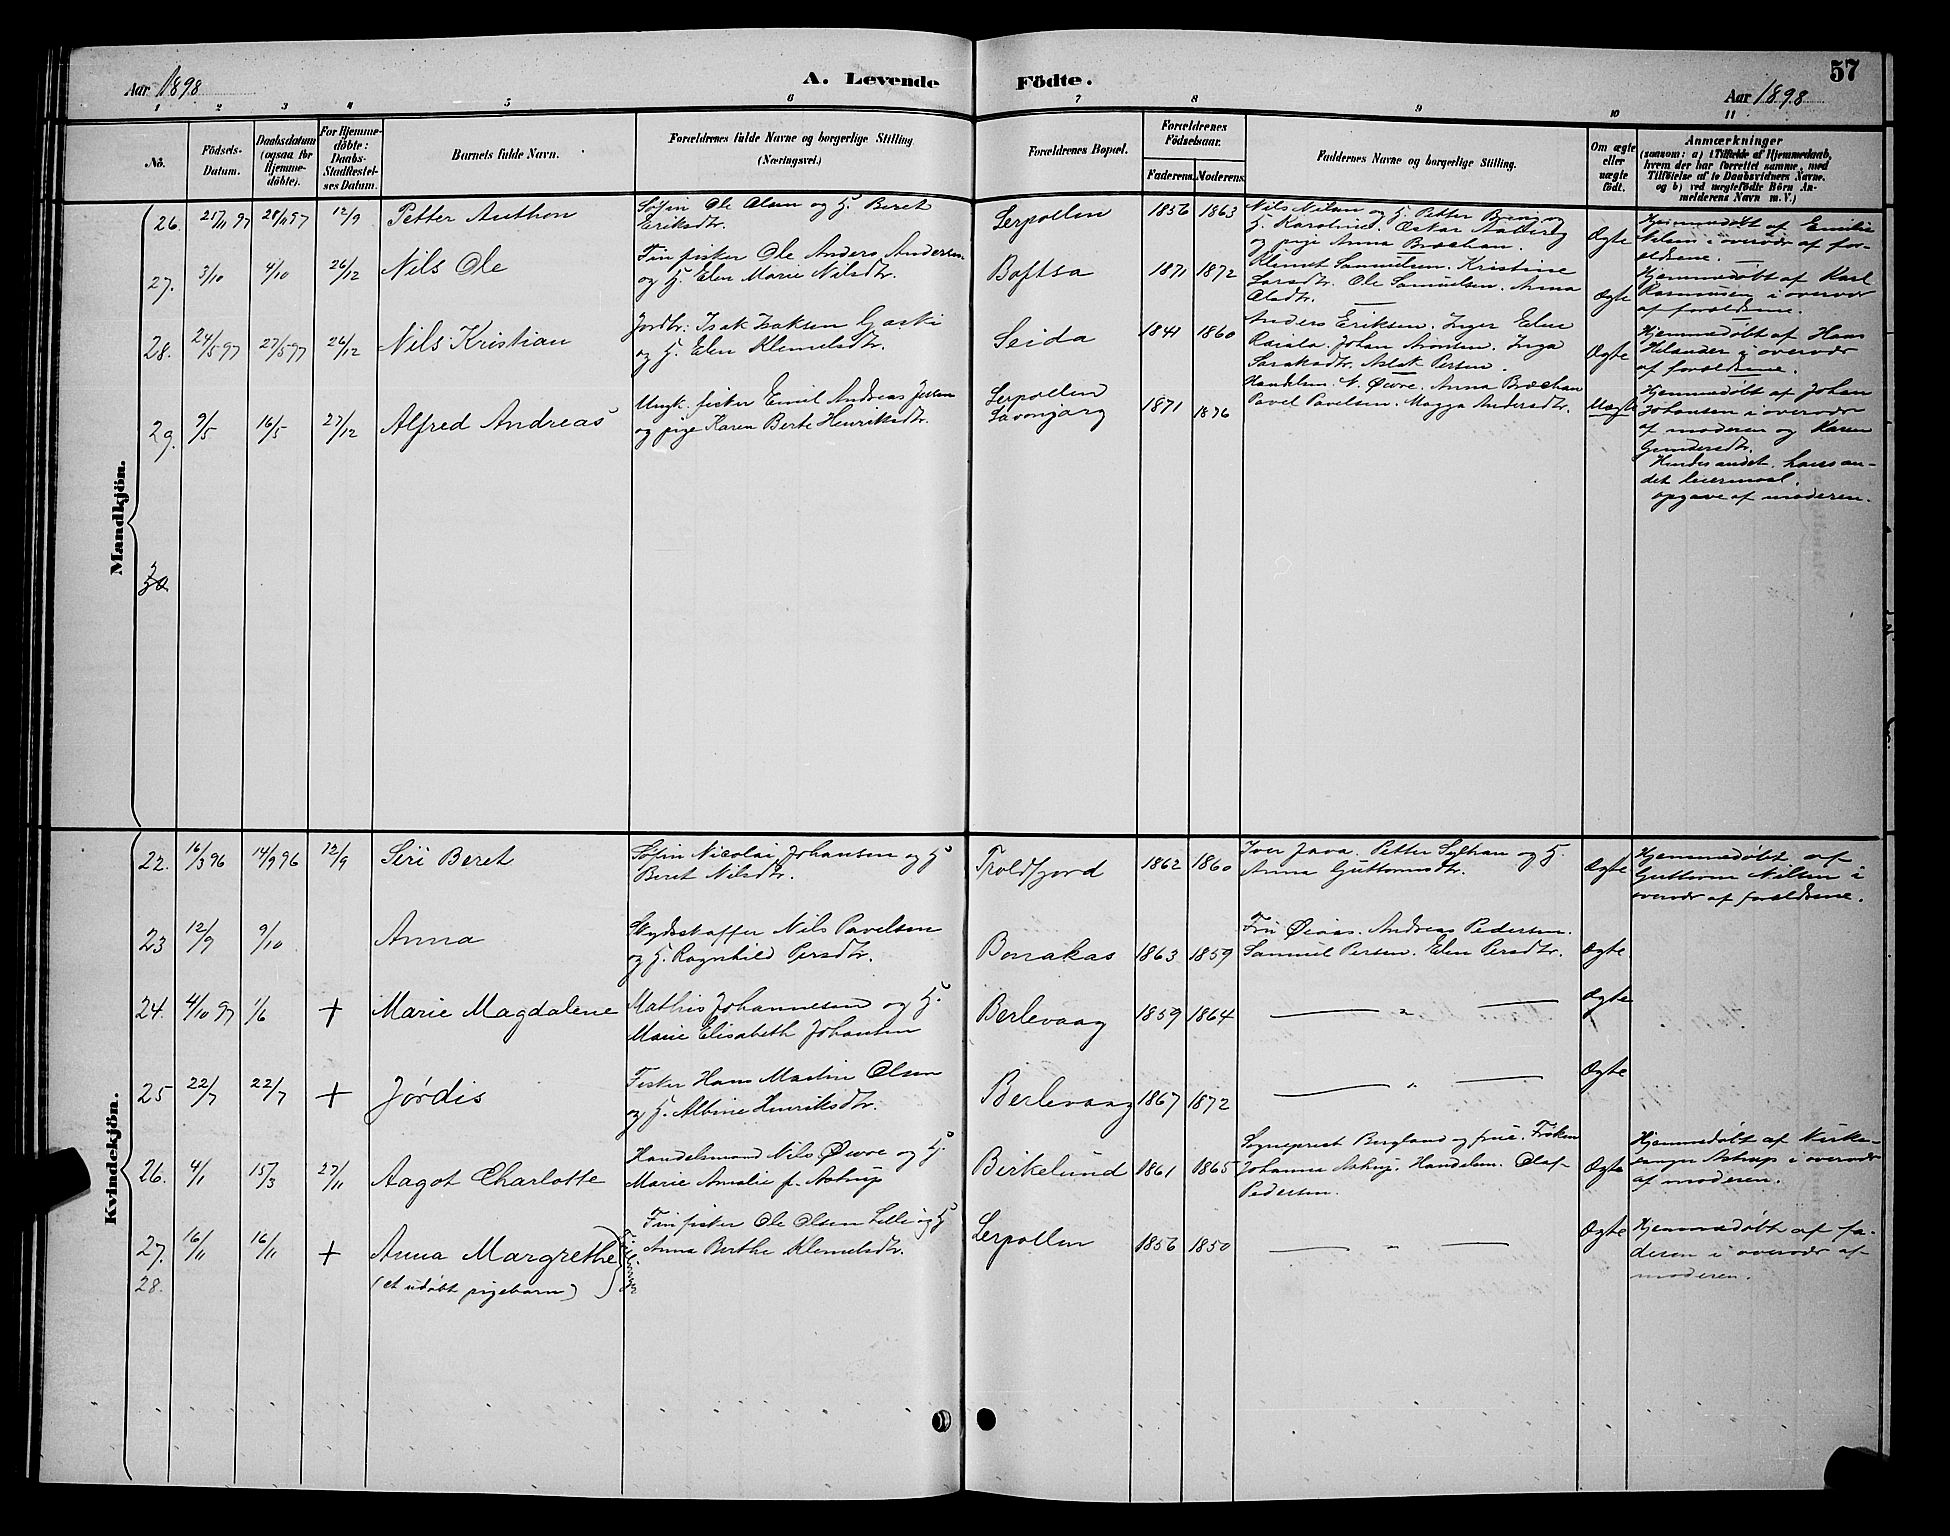 Aar 1898
A. Levende
Födte.
57
Aar 1898
1 2 3 4 5 6 7 8 9 10 11
No.
Födsels-
Datum.
Daabsdatum
(ogsaa for
Hjemme-
döbte).
For Hjemme-
döbte:
Daabs-
Stadfæstel-
ses Datum.
Barnets fulde Navn.
Forældrenes fulde Navne og borgerlige Stilling
(Næringsvei.)
Forældrenes Bopæl.
Forældrenes
Födselsaar.
Faderens.
Moderens.
Faddernes Navne og borgerlige Stilling.
Om ægte
eller
uægte
födt.
Anmærkninger
(saasom: a) i Tilfælde af Hjemmedaab,
hvem der har forrettet samme, med
Tilföielse af to Daabsvidners Navne.
og b) ved uægtefödte Börn An-
melderens Navn m. V.)
Mandkjön.
26. 21/11 97 28/11 97 12/9 Petter Anthon
Söfin Ole Olsen og H. Beret
Eriksdtr.
Lerpollen 1856 1863
Nils Nilsen og H. Petter Breng og
H. Karoline. Oskar Aalberg
og pige Anna Brochan.
Ægte
Hjemmedøbt af Emilie
Nilsen i overvær af for-
ældrene.
27. 3/10 4/10 26/12 Nils Ole
Fin fisker Ole Anders Andersen
og H. Elen Marie Nilsdtr.
Boftsa 1871 1872
Klemet Samuelsen. Kristine
Larsdtr. Ole Samuelsen. Anna
Olsdtr.
Ægte
Hjemmedøbt af Karl
Rasmussen i overvær
af forældrene.
28. 24/5 97 27/5 97 26/12 Nils Kristian
Jordbr. Isak Isaksen Gaski
og H. Elen Klemetsdtr.
Seida 1841 1860
Anders Eriksen. Inger Elne
Raisla. Johan Aronsen. Inga
Saraksdtr. Aslak Persen.
Ægte
Hjemmedøbt af Hans
Helander i overvær
af forældrene.
29. 9/5 16/5 27/12 Alfred Andreas
Ungk. fisker Emil Andreas Jessen
og pige Karen Berte Henriksdtr.
Lerpollen
Lavonjarg
1871 1876
Handelsm. N. Øwre. Anna Brochan
Pavel Pavelsen. Magga Andersdtr.
Uægte
Hjemmedøbt af Johan
Johansen i overvær
af moderen og Karen
Gundersdtr.
Hendes andet. hans an-
det leiermaal.
opgave af moderen.
30
Kvindekjön.
22. 16/3 96 14/9 96 12/9 Siri Beret
Söfin Nicolai Johansen og H
Beret Nilsdtr.
Troldfjord 1862 1860
Iver Java. Petter Sylhan og H.
Anna Guttormsdtr.
Ægte
Hjemmedøbt af
Guttorm Nilsen i
overvær af forældrene.
23 12/9 9/10 Anna
Skydsskaffer Nils Pavelsen
og H. Ragnhild Persdtr.
Bonakas 1863 1859
Fru Øiaas. Andreas Pedersen.
Samuel Persen. Elen Persdtr.
Ægte
24. 4/10 97 1/6 + Marie Magdalene
Mathis Johannesen og H.
Marie Elisabeth Johansen
Berlevaag 1859 1864 — " — Ægte
25 22/7 22/7 + Jørdis
Fisker Hans Martin Olsen
og H. Albine Henriksdtr.
Berlevaag 1867 1872 — " — Ægte
26. 4/1 15/3 27/11 Aagot Charlotte
Handelsmand Nils Øwre og H.
Marie Amalie f. Astrup
Birkelund 1861 1865
Sogneprest Bergland og frue. Frøken
Johanna Astrup. Handelsm. Olaf
Pedersen.
Ægte
Hjemmedøbt af Kirke-
sanger Astrup i overvær
af moderen.
27. 16/11 16/11 + Anna Margrethe
28. (et udøbt pigebarn)
Tvillinger
Fin fisker Ole Olsen Lille og H
Anna Berthe Klemetsdtr.
Lerpollen 1856 1850 — " — Ægte
Hjemmedøbt af fa-
deren i overvær af
moderen.